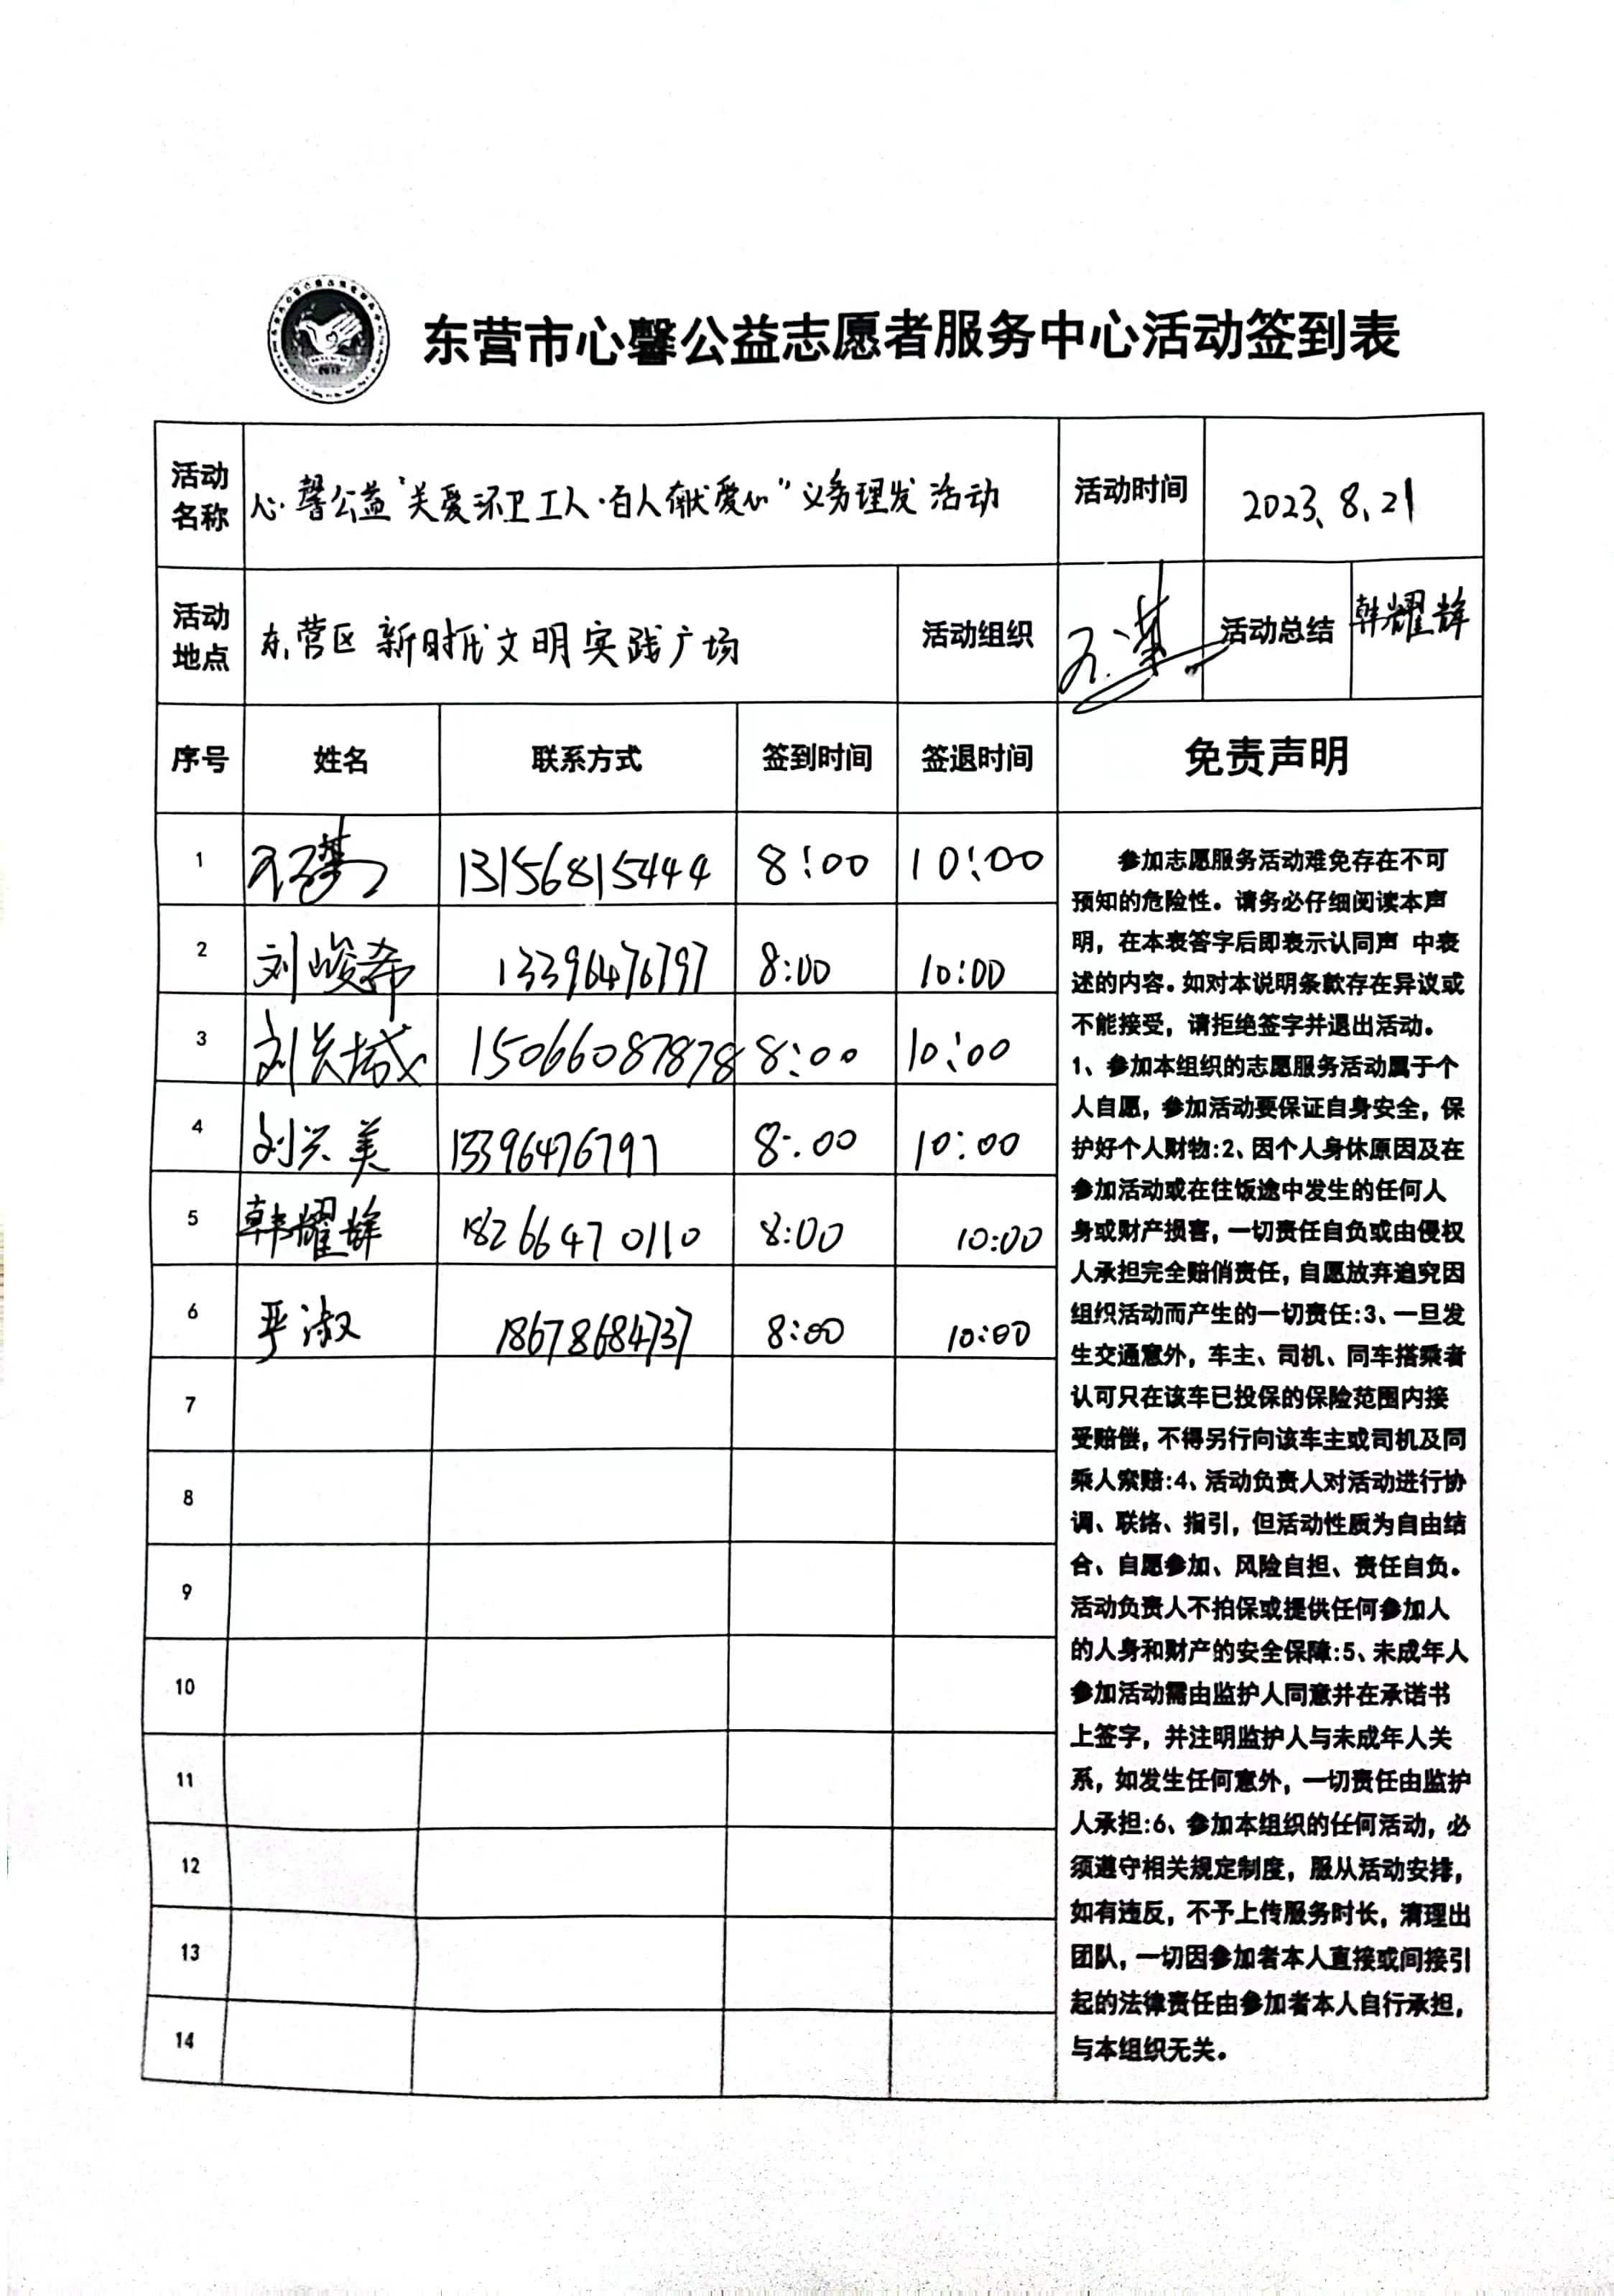 东营市心馨公益志愿者服务中心活动签到表
活动名称 心馨公益“关爱环卫工人·百人献爱心”义务理发活动 活动时间 2023、8、21
活动地点 东营区新时代文明实践广场 活动组织 活动总结 韩耀辉
序号 姓名 联系方式 签到时间 签退时间 免责声明
1 13156815444 8:00 10:00
2 刘峻希 13396476797 8:00 10:00
3 刘兴城 15066087878 8:00 10:00
4 刘兴美 13396476797 8:00 10:00
5 韩耀辉 18266470110 8:00 10:00
6 严淑 18678684737 8:00 10:00
7
8
9
10
11
12
13
14
参加志愿服务活动难免存在不可
预知的危险性。请务必仔细阅读本声
明，在本表签字后即表示认同声 中表
述的内容。如对本说明条款存在异议或
不能接受，请拒绝签字并退出活动。
1、参加本组织的志愿服务活动属于个
人自愿，参加活动要保证自身安全，保
护好个人财物:2、因个人身休原因及在
参加活动或在往饭途中发生的任何人
身或财产损害，一切责任自负或由侵权
人承担完全赔俏责任，自愿放弃追究因
组织活动而产生的一切责任:3、一旦发
生交通意外，车主、司机、同车搭乘者
认可只在该车已投保的保险范围内接
受赔偿，不得另行向该车主或司机及同
乘人索赔:4、活动负责人对活动进行协
调、联络、指引，但活动性质为自由结
合、自愿参加、风险自担、责任自负。
活动负责人不拍保或提供任何参加人
的人身和财产的安全保障:5、未成年人
参加活动需由监护人同意并在承诺书
上签字，并注明监护人与未成年人关
系，如发生任何意外，一切责任由监护
人承担:6、参加本组织的任何活动，必
须遵守相关规定制度，服从活动安排，
如有违反，不予上传服务时长，清理出
团队，一切因参加者本人直接或间接引
起的法律责任由参加者本人自行承担，
与本组织无关。